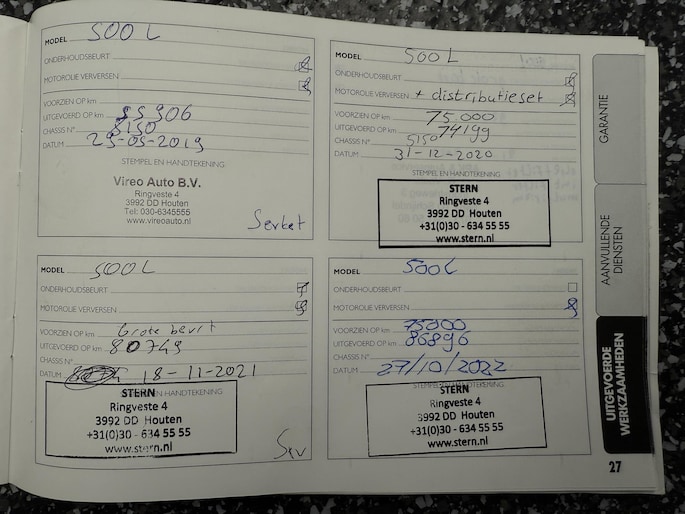 MODEL 500L
ONDERHOUDSBEURT
MOTOROLIE VERVERSEN
VOORZIEN OP km
UITGEVOERD OP km 55906
CHASSIS N° 5150
DATUM 29-05-2019
STEMPEL EN HANDTEKENING
Vireo Auto B.V.
Ringveste 4
3992 DD Houten
Tel: 030-6345555
www.vireoauto.nl
MODEL 500L
ONDERHOUDSBEURT
MOTOROLIE VERVERSEN + distributieset
VOORZIEN OP km 75.000
UITGEVOERD OP km 74199
CHASSIS N° 5150
DATUM 31-12-2020
STEMPEL EN HANDTEKENING
STERN
Ringveste 4
3992 DD Houten
+31(0)30 - 634 55 55
www.stern.nl
MODEL 500L
ONDERHOUDSBEURT
MOTOROLIE VERVERSEN
VOORZIEN OP km Grote beurt
UITGEVOERD OP km 80749
CHASSIS N°
DATUM 18-11-2021
EN HANDTEKENING
STERN
Ringveste 4
3992 DD Houten
+31(0)30 - 634 55 55
www.stern.nl
MODEL 500L
ONDERHOUDSBEURT
MOTOROLIE VERVERSEN
VOORZIEN OP km 75000
UITGEVOERD OP km 86890
CHASSIS N°
DATUM 27/10/2022
STERN
Ringveste 4
3992 DD Houten
+31(0)30 - 634 55 55
www.stern.nl
GARANTIE
AANVULLENDE
DIENSTEN
UITGEVOERDE
WERKZAAMHEDEN
27